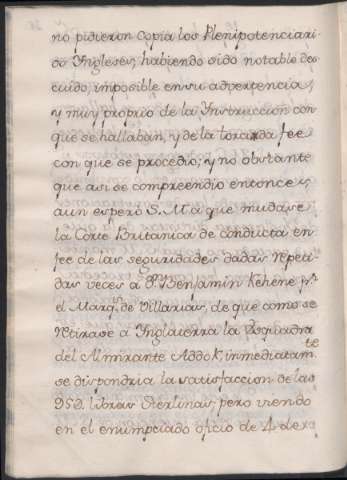 no pidieron copia los Plenipotenciari-
os Ingleses, habiendo sido notable des
cuido, imposible en su advertencia,
y muy proprio de la Instruccion con
que se hallaban, y de la torcida fee
con que se procedio; y no obstante
que asi se compreendio entonces,
aun esperó S. M. à que mudase
la Corte Britanica de conducta en
fee de las seguridades dadas repeti-
das veces à Dn. Benjamin Kehene pr.
el Marqs. de Villarias, de que como se
retirase à Inglaterra la Esquadra
del Almirante Addok, inmediatamte
se dispondria la satisfaccion de las
95⨎. libras Sterlinas, pero viendo
en el enunpciado oficio de 4 de